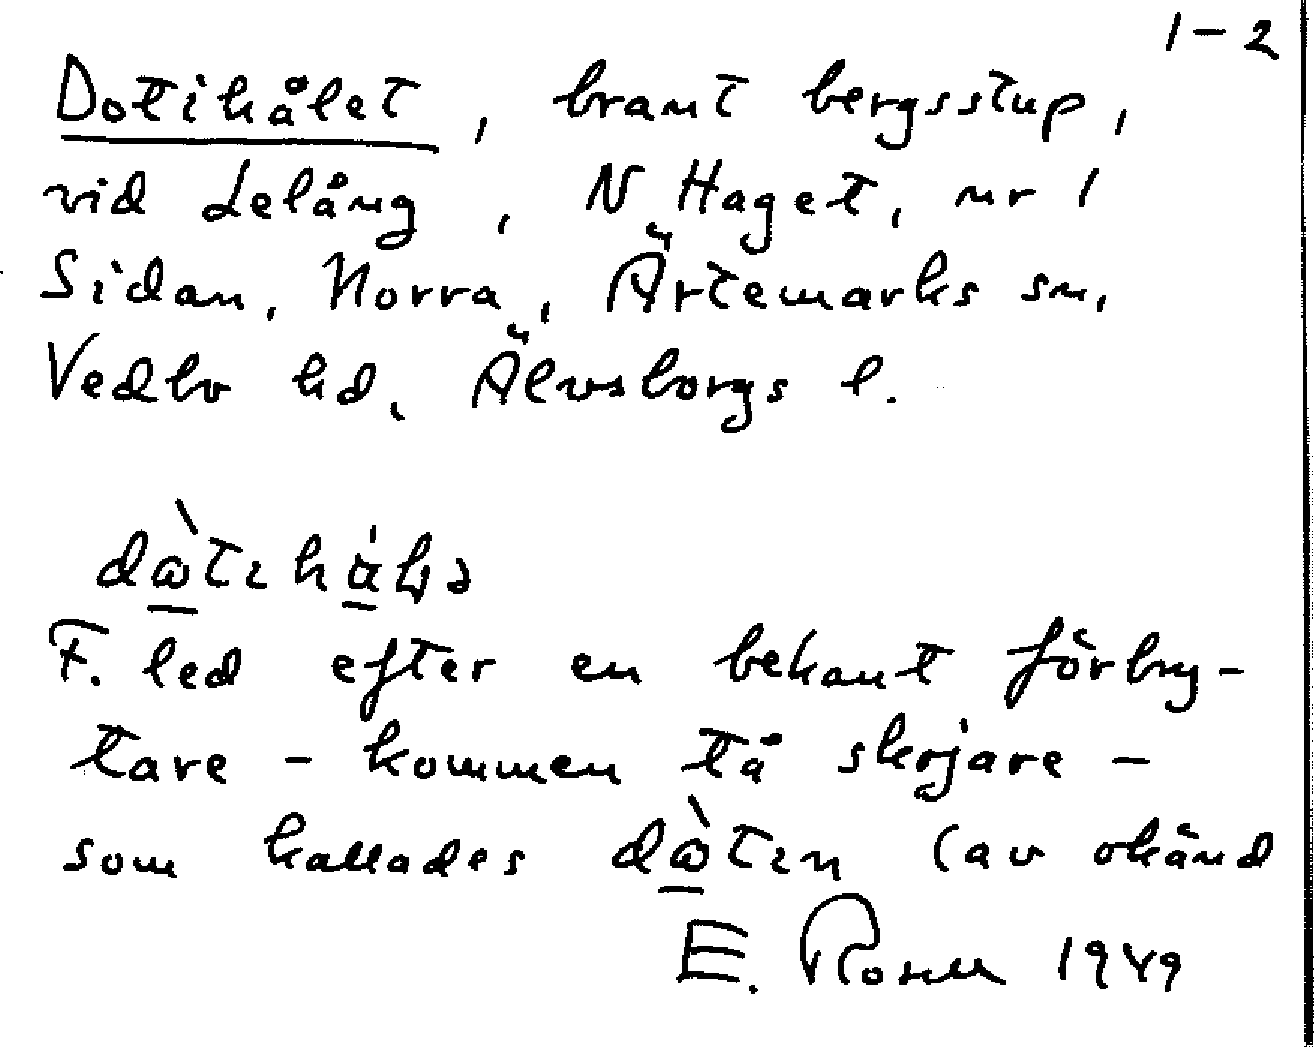 1-2
Dotihålet, brant bergsstup,
vid Lelång, N Haget, nr 1
Sidan, Norra, Ärtemarks sn,
Vedbo hd, Älvsborgs l.
F. led efter en bekant förbry-
tare - kommen tå skojare -
som kallades (av okänd
E. Rosell 1949